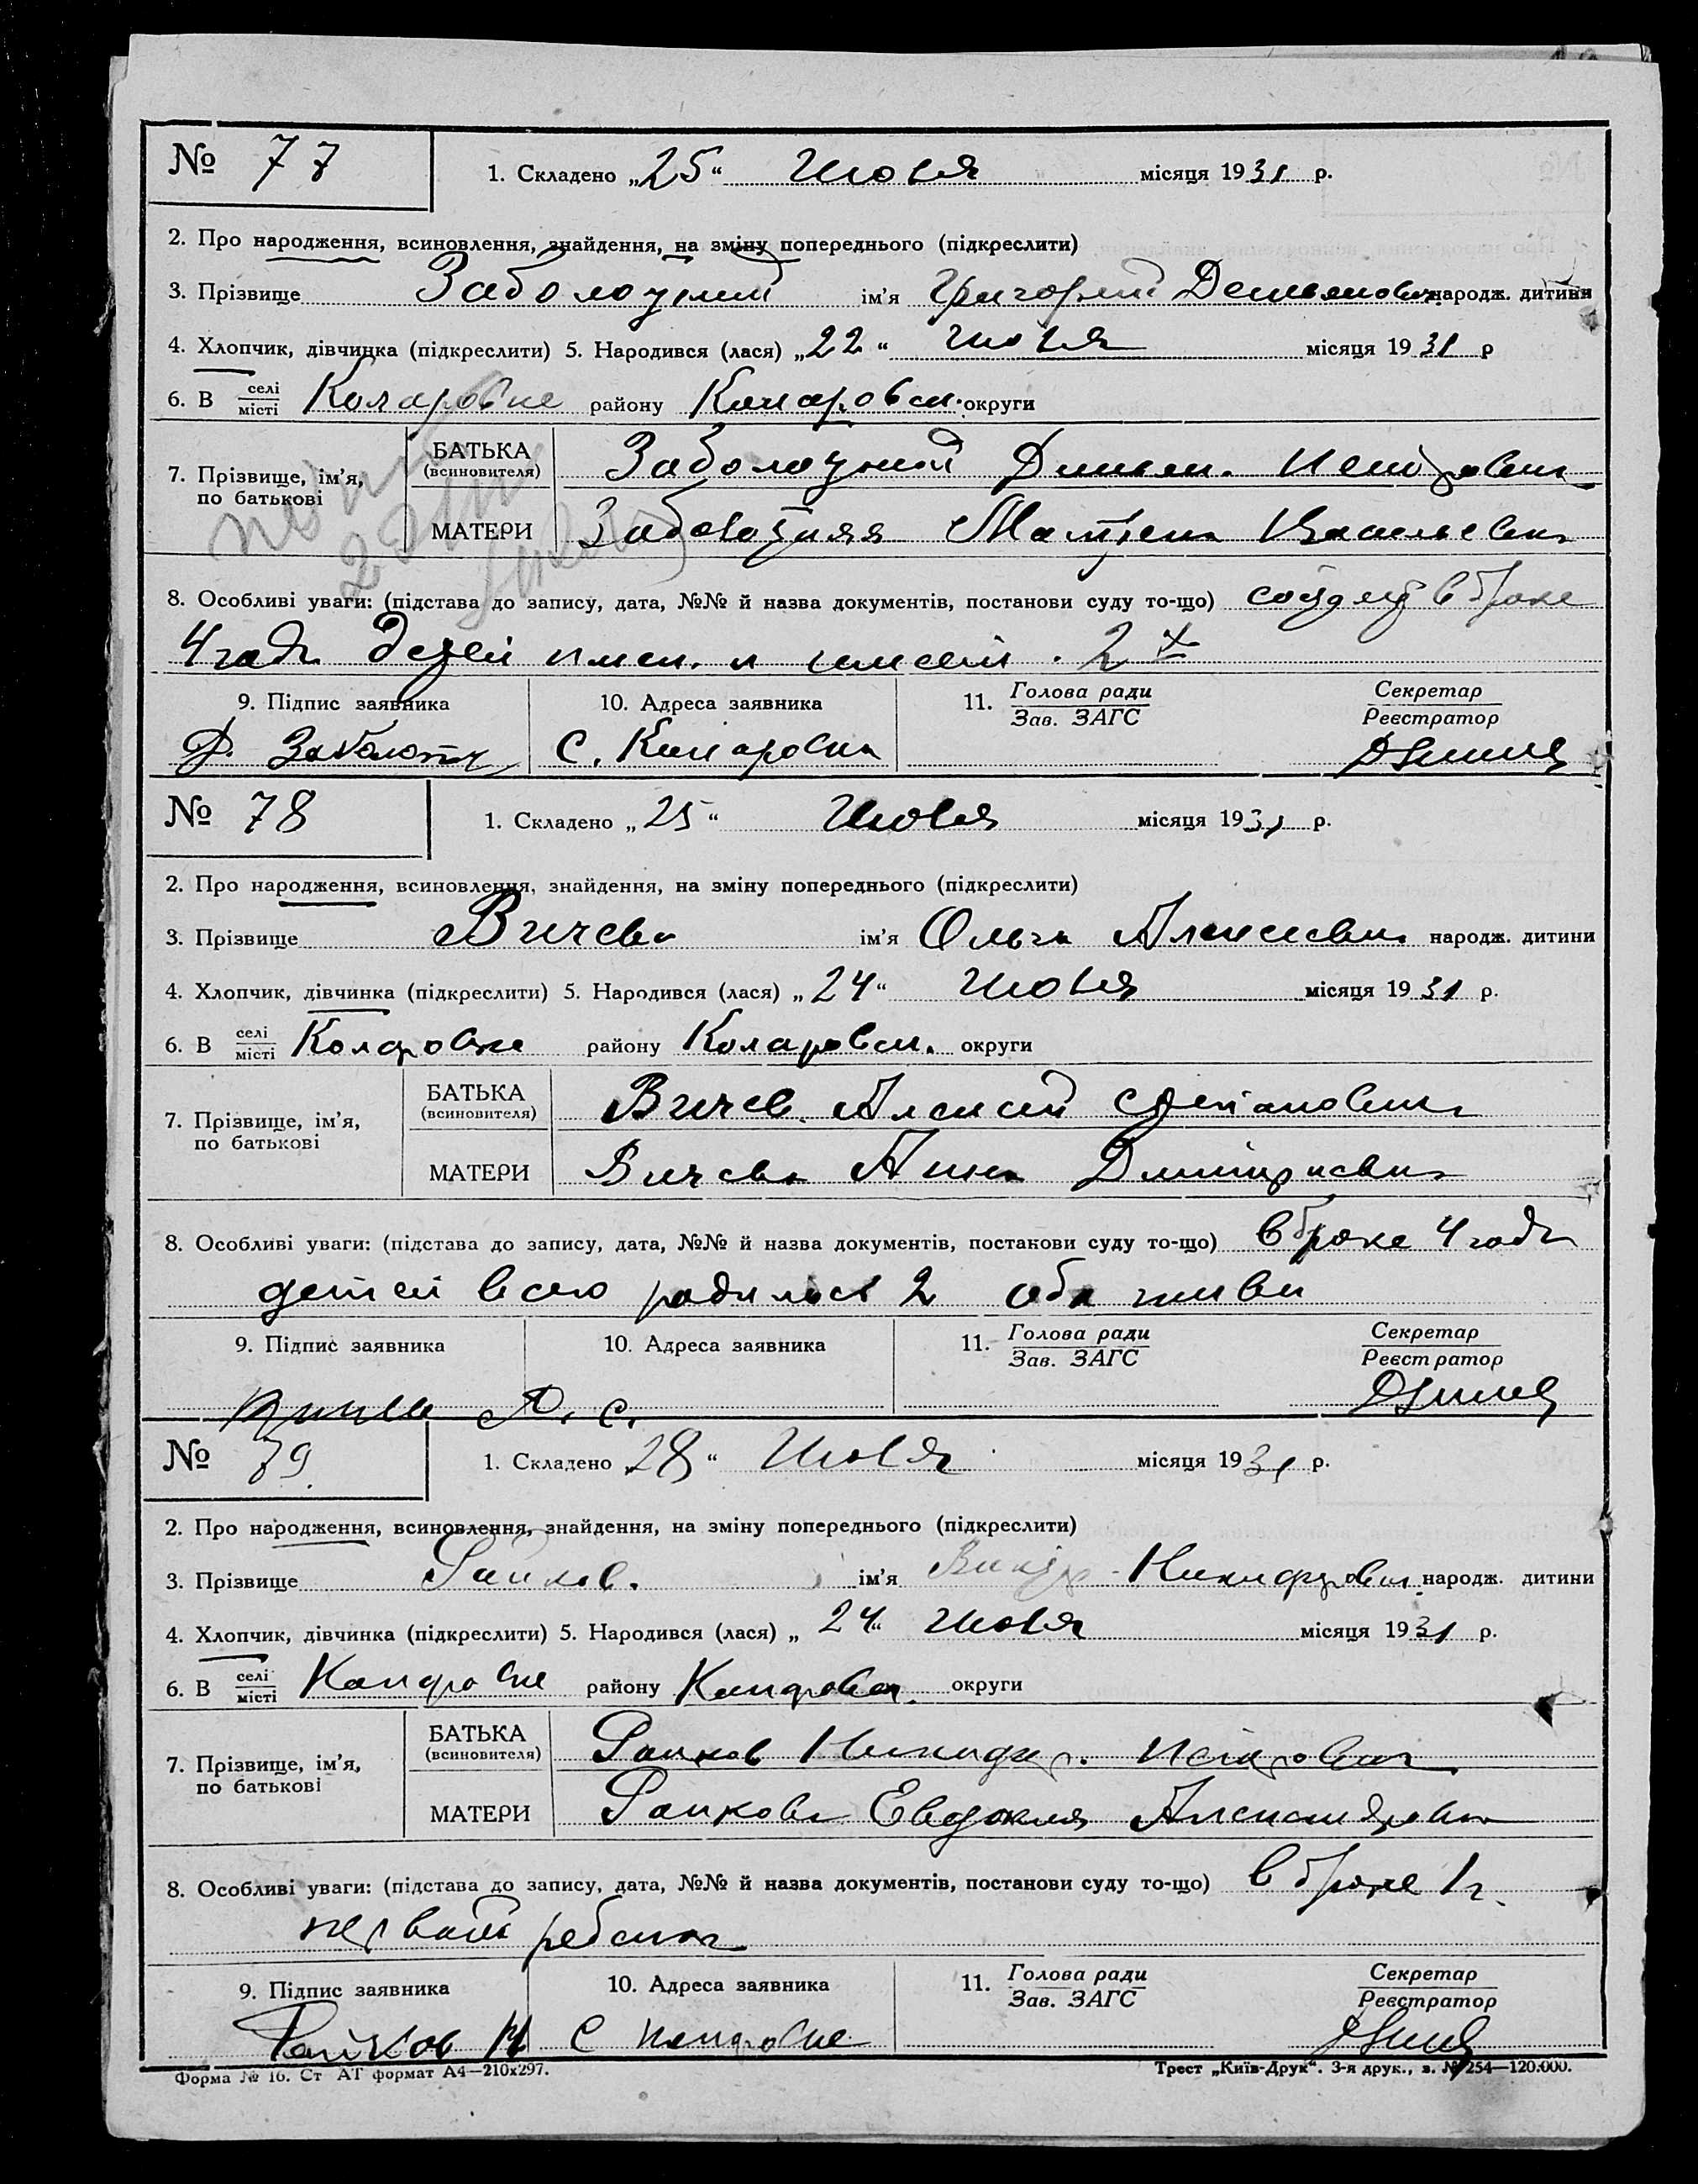 № 77 1. Складено „25“ Июля місяця 1931 р.
2. Про народження, всиновлення, знайдення, на зміну попереднього (підкреслити)
3. Прізвище Заболотний ім’я Григорий Демьянович народж. дитини
4. Хлопчик, дівчинка (підкреслити) 5. Народився (лася) „22“ Июля місяця 1931 р
6. В селі/місті Коларовке району Коларовск. округи
7. Прізвище, ім’я, по батькові
БАТЬКА (всиновителя) Заболотной Демьян Петрович
МАТЕРИ Заболотная Матрена Васильевна
8. Особливі уваги: (підстава до запису, дата, №№ й назва документів, постанови суду то-що) в браке
4 года детей 2х
9. Підпис заявника 10. Адреса заявника 11. Голова ради/Зав. ЗАГС Секретар/Реєстратор
Д. Заболотн С. Коларовка
№ 78 1. Складено „25“ Июля місяця 1931 р.
2. Про народження, всиновлення, знайдення, на зміну попереднього (підкреслити)
3. Прізвище Вичева ім’я Ольга Алексеевна народж. дитини
4. Хлопчик, дівчинка (підкреслити) 5. Народився (лася) „24“ Июля місяця 1931 р.
6. В селі/місті Коларовке району Коларовск. округи
7. Прізвище, ім’я, по батькові
БАТЬКА (всиновителя) Вичев Алексей Степанович
МАТЕРИ Вичева Анна Дмитриевна
8. Особливі уваги: (підстава до запису, дата, №№ й назва документів, постанови суду то-що) в браке 4 года
детей всего родилось 2 оба живы
9. Підпис заявника 10. Адреса заявника 11. Голова ради/Зав. ЗАГС Секретар/Реєстратор
А. С.
№ 79. 1. Складено „28“ Июля місяця 1931 р.
2. Про народження, всиновлення, знайдення, на зміну попереднього (підкреслити)
3. Прізвище Райков. ім’я Никифорович народж. дитини
4. Хлопчик, дівчинка (підкреслити) 5. Народився (лася) „24“ Июля місяця 1931 р.
6. В селі/місті Коларовке району Коларовск. округи
7. Прізвище, ім’я, по батькові
БАТЬКА (всиновителя) Райков Никифор. Петрович
МАТЕРИ Райкова Евдокия Александровна
8. Особливі уваги: (підстава до запису, дата, №№ й назва документів, постанови суду то-що) в браке 1 г.
первый ребенок
9. Підпис заявника 10. Адреса заявника 11. Голова ради/Зав. ЗАГС Секретар/Реєстратор
Райков Н С Коларовке
Форма № 16. Ст АТ формат А4—210х297. Трест „Київ-Друк“. 3-я друк., з. № 254—120.000.